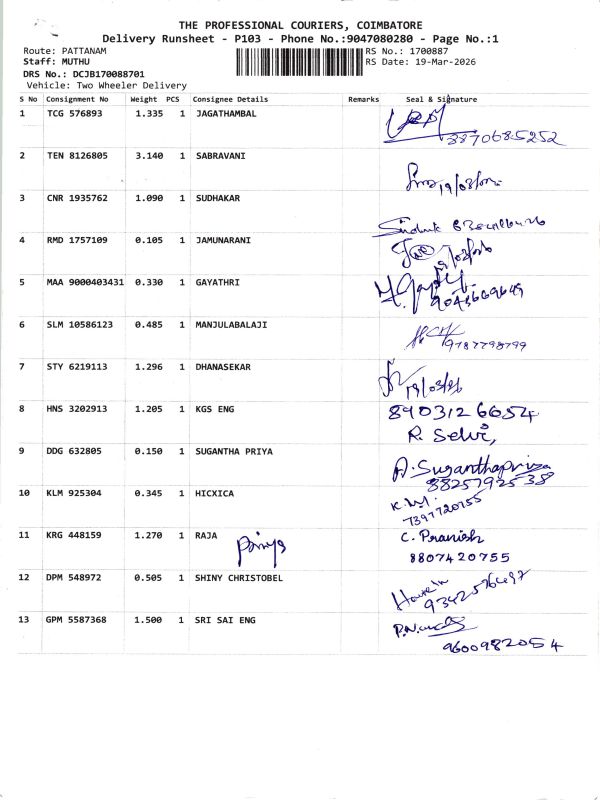 THE PROFESSIONAL COURIERS, COIMBATORE
Delivery Runsheet - P103 - Phone No.:9047080280 - Page No.:1
Route: PATTANAM RS No.: 1700887
Staff: MUTHU RS Date: 19-Mar-2026
DRS No.: DCJB170088701
Vehicle: Two Wheeler Delivery
S No Consignment No Weight PCS Consignee Details Remarks Seal & Signature
1 TCG 576893 1.335 1 JAGATHAMBAL
8870685252
2 TEN 8126805 3.140 1 SABRAVANI
3 CNR 1935762 1.090 1 SUDHAKAR
4 RMD 1757109 0.105 1 JAMUNARANI
5 MAA 9000403431 0.330 1 GAYATHRI
6 SLM 10586123 0.485 1 MANJULABALAJI
7 STY 6219113 1.296 1 DHANASEKAR
19/03/26
8 HNS 3202913 1.205 1 KGS ENG 8903126654
R. Selvi,
9 DDG 632805 0.150 1 SUGANTHA PRIYA A. Suganthapriya
8825792538
10 KLM 925304 0.345 1 HICXICA
7397720755
11 KRG 448159 1.270 1 RAJA C. Pranish
8807420755
12 DPM 548972 0.505 1 SHINY CHRISTOBEL
13 GPM 5587368 1.500 1 SRI SAI ENG
9600982054